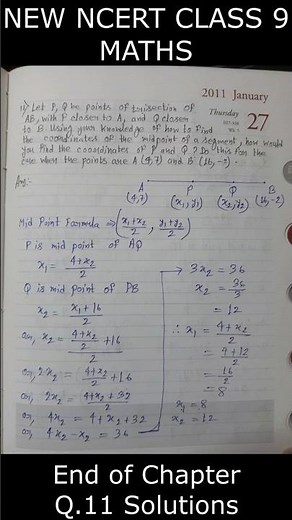 NEW NCERT CLASS 9
MATHS
2011 January
Thursday
27
11) Let P, Q be points of trisection of
AB, with P closer to A, and Q closer
to B. Using your knowledge of how to find
the coordinates of the midpoint of a segment, how would
you find the coordinates of P and Q? Do this for the
case when the points are A (4,7) and B (16,-2).
Ans:-
A P Q B
(4,7) (x₁,y₁) (x₂,y₂) (16,-2)
Mid Point Formula ⇒ (x₁+x₂/2, y₁+y₂/2)
P is mid point of AQ
x₁ = 4+x₂/2
Q is mid point of PB
x₂ = x₁+16/2
or, x₂ = 4+x₂/2 +16/2
or, 2x₂ = 4+x₂/2 +16
or, 2x₂ = 4+x₂+32/2
or, 4x₂ = 4+x₂+32
or, 4x₂-x₂ = 36
3x₂ = 36
x₂ = 36/3
= 12
∴ x₁ = 4+x₂/2
= 4+12/2
= 16/2
= 8
x₁ = 8
x₂ = 12
End of Chapter
Q.11 Solutions